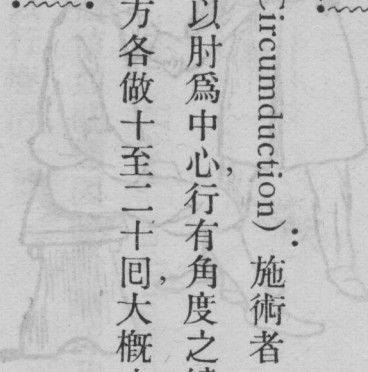 Circumduction)：施術者
以肘爲中心，行有角度之
方各做十至二十囘，大概